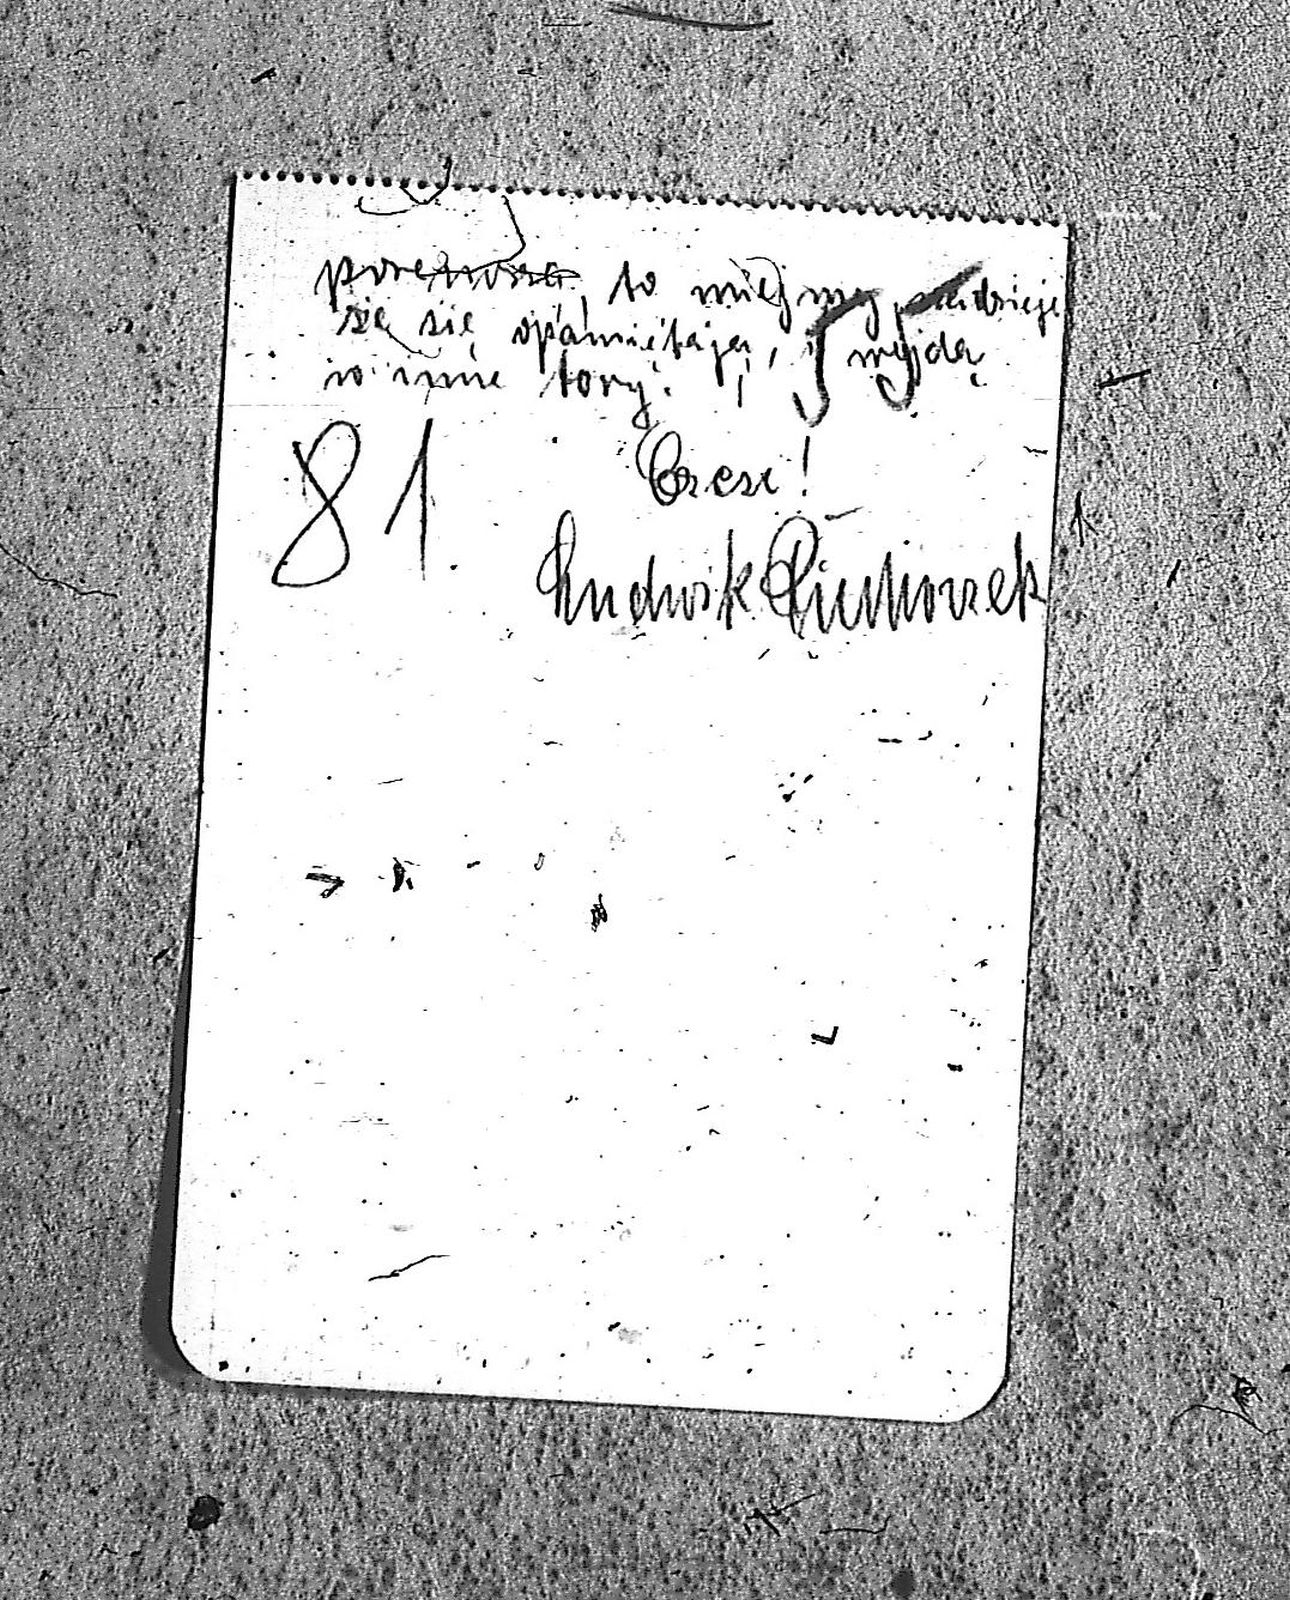 to miejmy nadzieję
że się opamiętają, i wyjdą
w inne tory.
81.
Cześć!
Ludwik